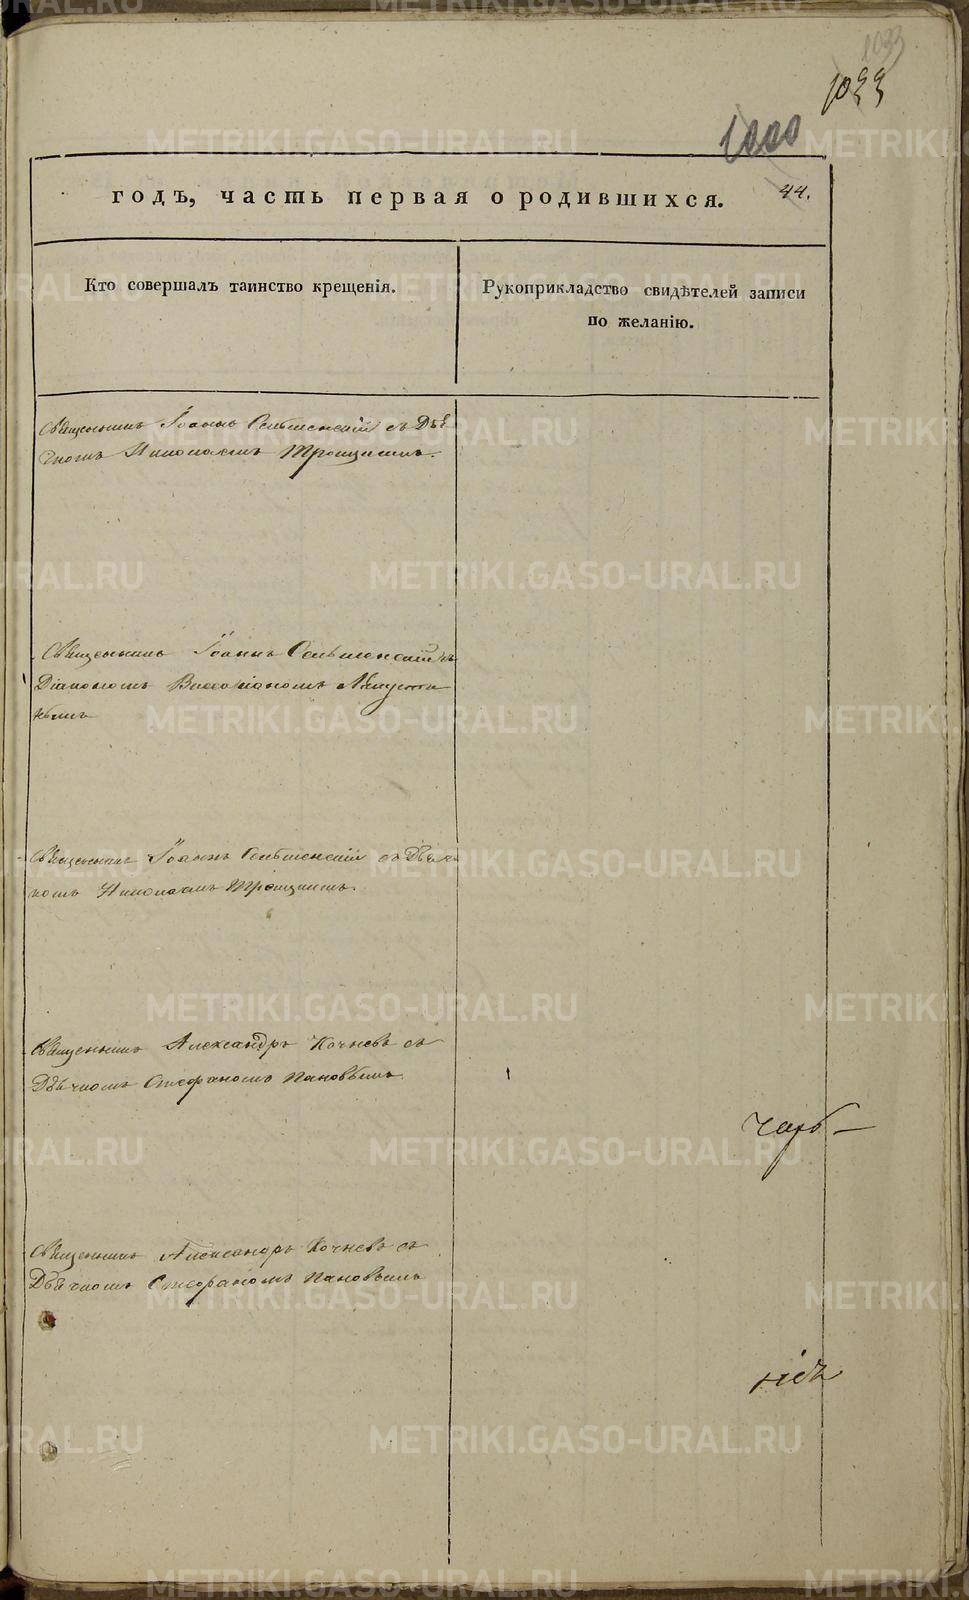 1033
1033
1000
годъ, часть первая о родившихся. 44.
Кто совершалъ таинство крещенія.
Рукоприкладство свидѣтелей записи
по желанію.
Священникъ Іоаннъ с Дья
чкомъ Николаемъ Троицкимъ.
Священникъ Іоаннъ съ
Діакономъ Виссаріономъ
Священникъ Іоаннъ съ Дьяч
комъ Николаемъ Троицкимъ.
Священникъ Александръ Кочневъ съ
Дьячкомъ Стефаномъ Пановымъ.
Священникъ Александръ Кочневъ съ
Дьячкомъ Стефаномъ Пановымъ
METRIKI.GASO-URAL.RU